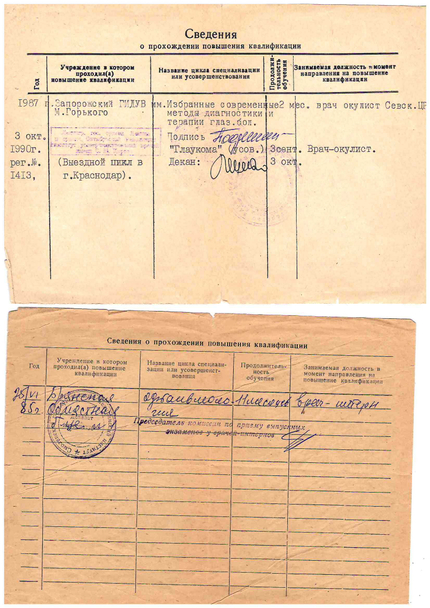 Сведения
о прохождении повышения квалификации
Год
Учреждение в котором проходил(а) повышение квалификации
Название цикла специализации или усовершенствования
Продолжительность обучения
Занимаемая должность к моменту направления на повышение квалификации
1987 г. Запорожский ГИДУВ им. Избранные современные 2 мес. врач окулист Севск.ЦР
М.Горького методя диагностики и
терапии глаз.бол.
3 окт. Подпись
1990г. "Глаукома" (усов.) 3сент. Врач-окулист.
рег.№. (Выездной цикл в Декан: 3 окт.
1413, г.Краснодар).
Сведения о прохождении повышения квалификации
Год
Учреждения в котором проходил(а) повышение квалификации
Название цикла специализации или усовершенствования
Продолжительность обучения
Занимаемая должность в момент направления на повышение квалификации
Брянская
85г. областная
врач-интерн
Председатель комиссии по приему выпускных
экзаменов у врачей-интернов